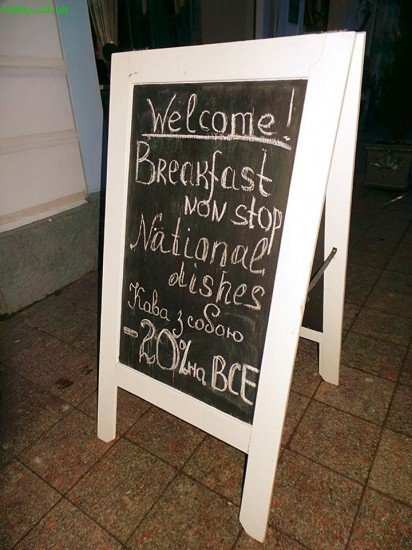 Welcome!
Breakfast
NON STOP
National
dishes
Кава з собою
-20% на ВСЕ